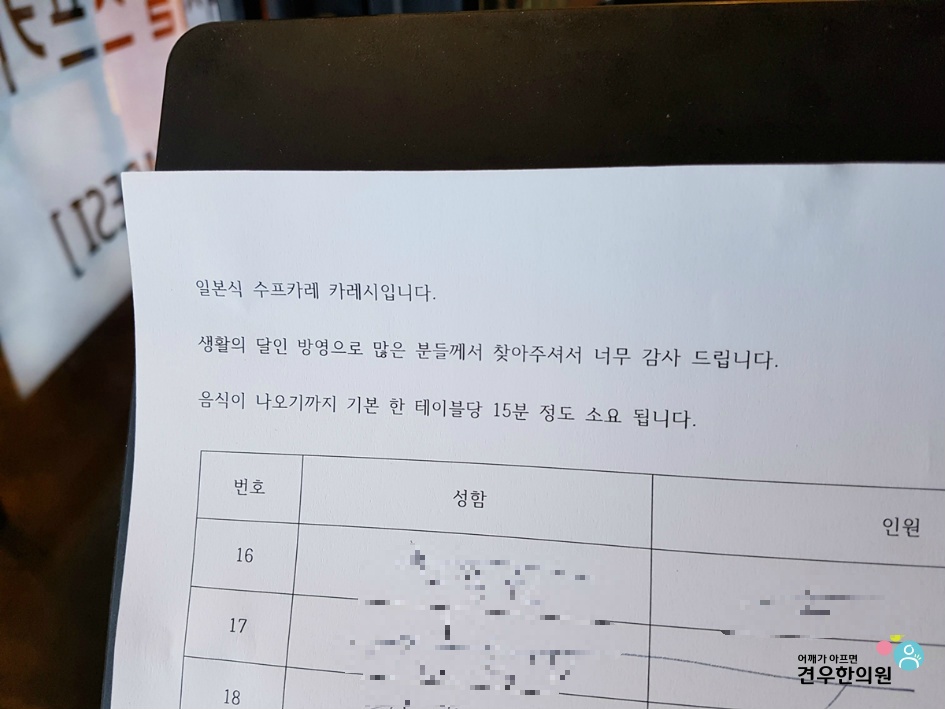 일본식 수프카레 카레시입니다.
생활의 달인 방영으로 많은 분들께서 찾아주셔서 너무 감사 드립니다.
음식이 나오기까지 기본 한 테이블당 15분 정도 소요 됩니다.
번호 성함 인원
16
17
18
어깨가 아프면
견우한의원